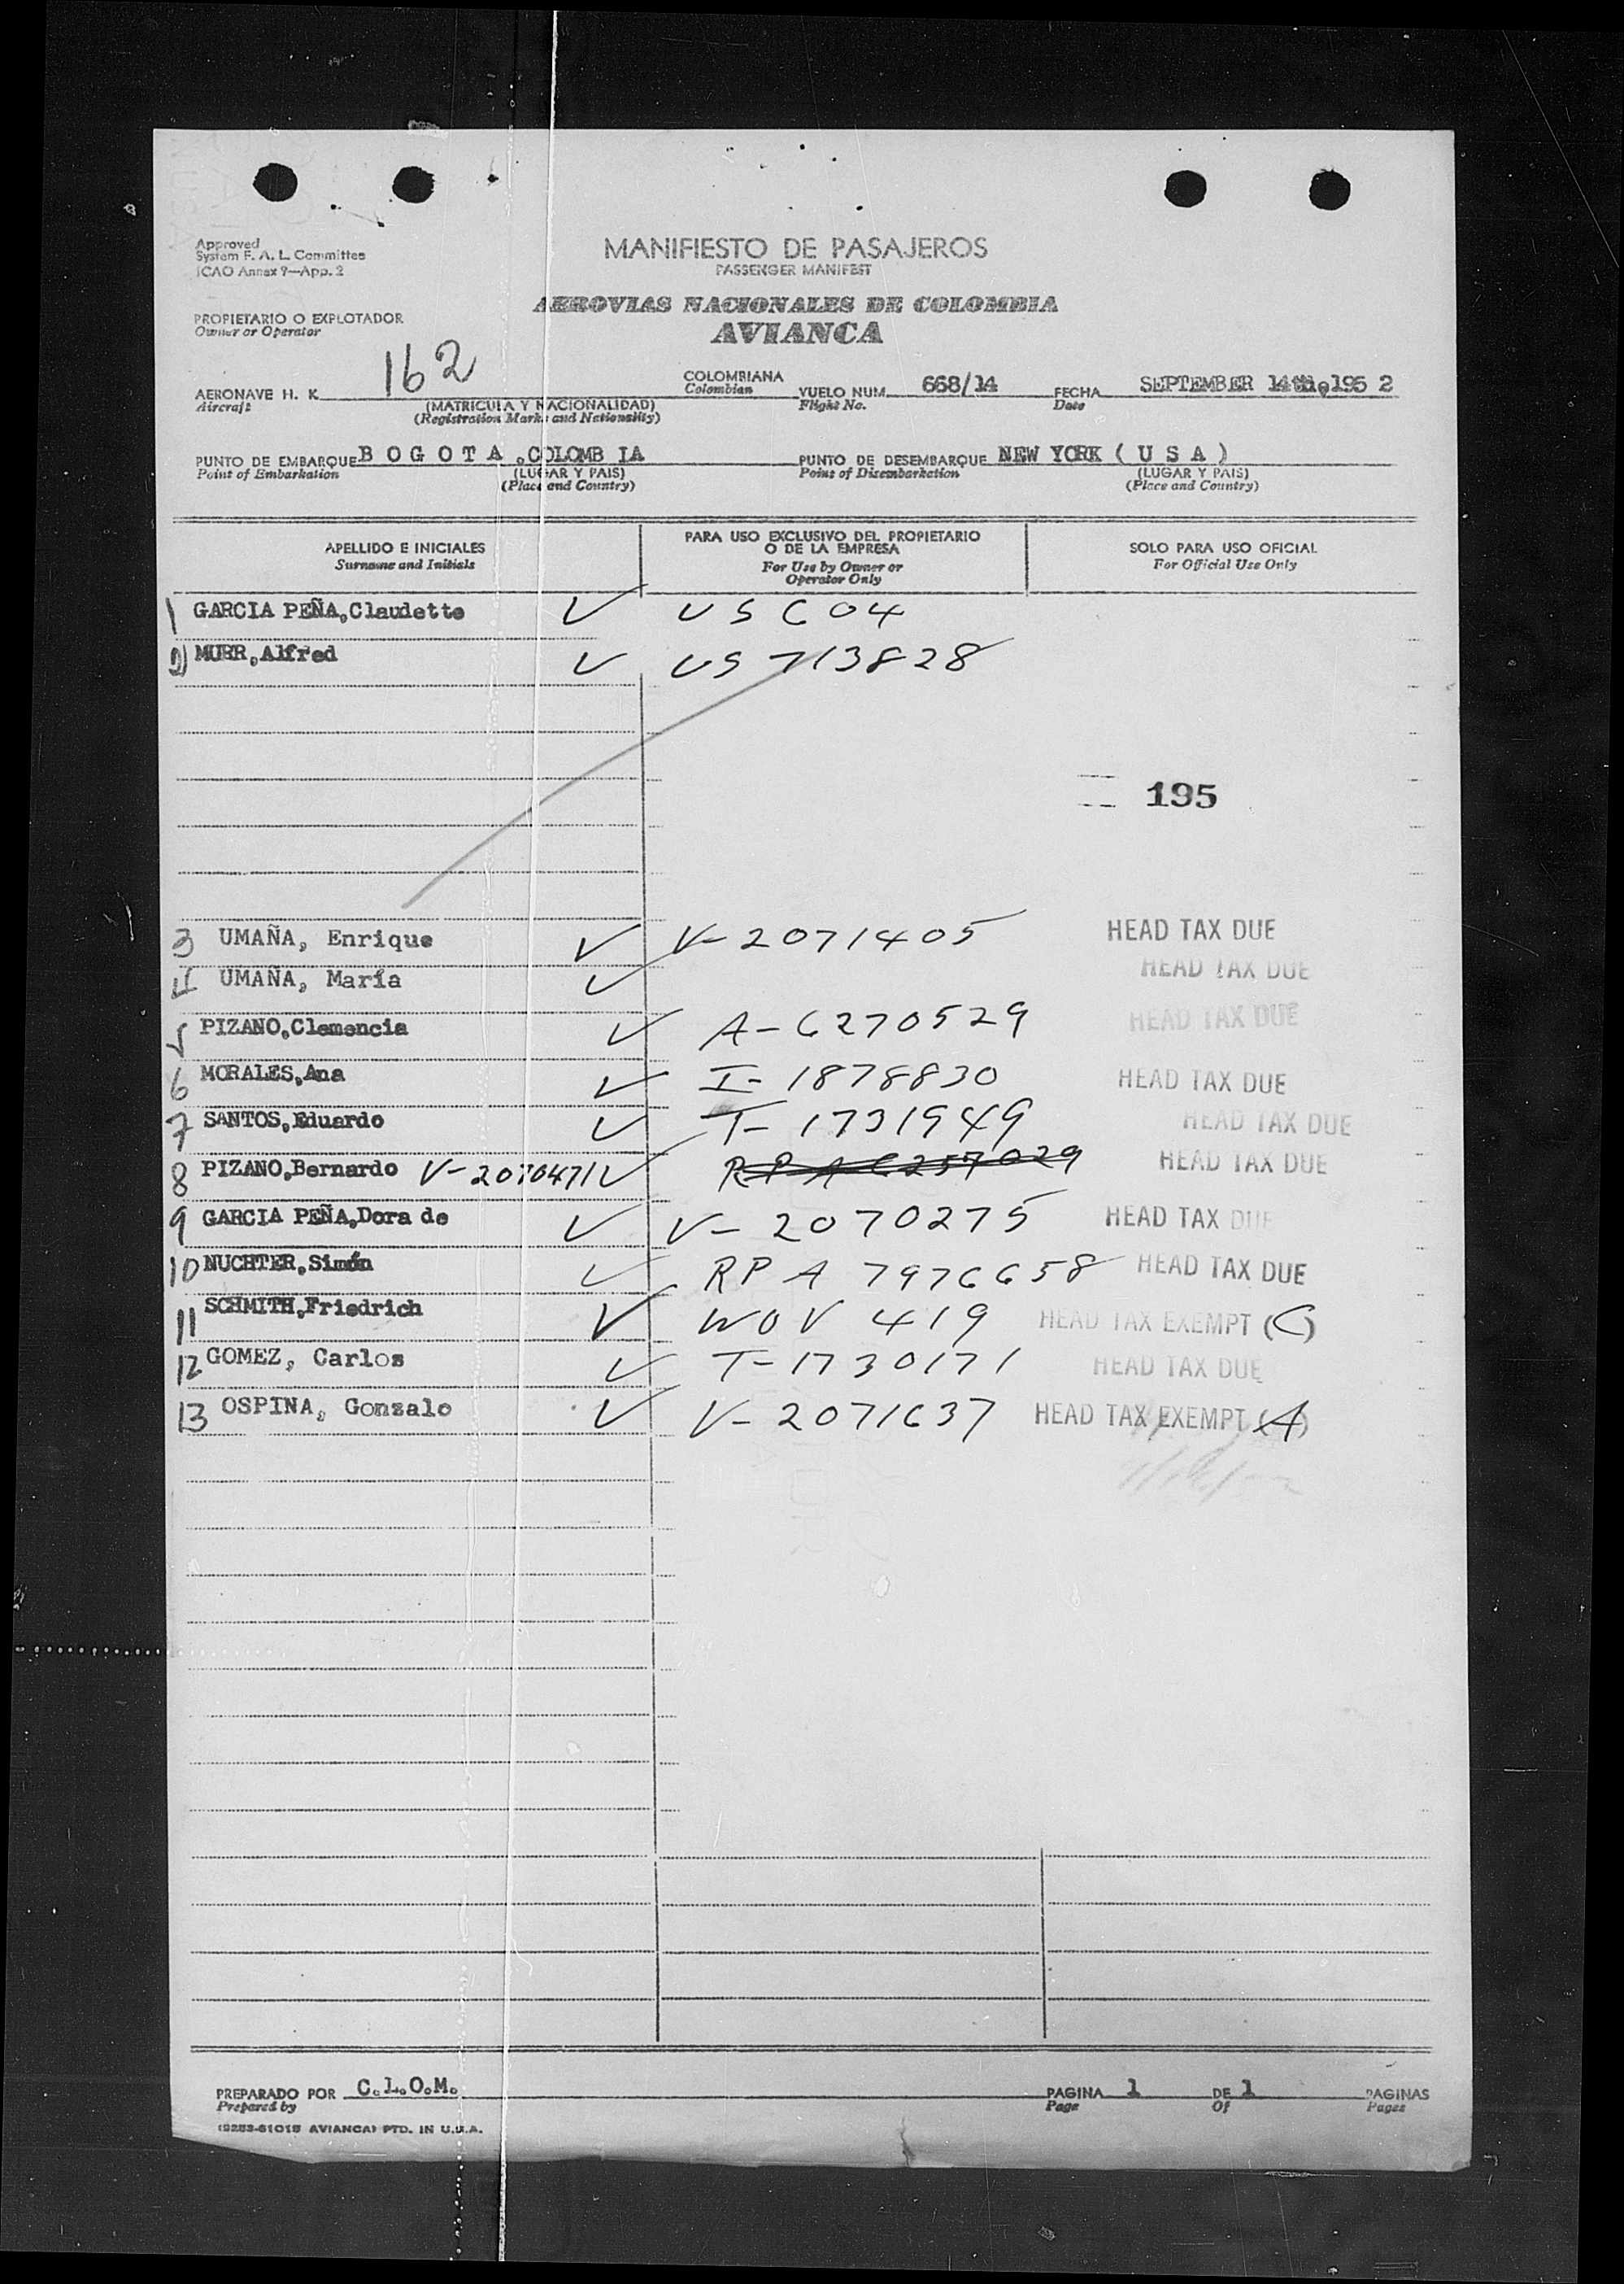 Approved
System F. A. L. Committee
ICAO Annex 9—App. 2
MANIFIESTO DE PASAJEROS
PASSENGER MANIFEST
AEROVIAS NACIONALES DE COLOMBIA
AVIANCA
PROPIETARIO O EXPLOTADOR
Owner or Operator
AERONAVE H. K. 162 COLOMBIANA VUELO NUM. 668/14 FECHA SEPTEMBER 14th, 195 2
Aircraft (MATRICULA Y NACIONALIDAD) Colombian Flight No. Date
(Registration Marks and Nationality)
PUNTO DE EMBARQUE B O G O T A ,COLOMB IA PUNTO DE DESEMBARQUE NEW YORK ( U S A )
Point of Embarkation (LUGAR Y PAIS) Point of Disembarkation (LUGAR Y PAIS)
(Place and Country) (Place and Country)
APELLIDO E INICIALES
Surname and Initials
PARA USO EXCLUSIVO DEL PROPIETARIO
O DE LA EMPRESA
For Use by Owner or
Operator Only
SOLO PARA USO OFICIAL
For Official Use Only
1 GARCIA PEÑA,Claudette ✓ US C 04
2 MURR,Alfred ✓ US 713828
195
3 UMAÑA, Enrique ✓ V-2071405 HEAD TAX DUE
4 UMAÑA, María ✓ HEAD TAX DUE
5 PIZANO,Clemencia ✓ A-6270529 HEAD TAX DUE
6 MORALES,Ana ✓ I-1878830 HEAD TAX DUE
7 SANTOS,Eduardo ✓ T-1731949 HEAD TAX DUE
8 PIZANO,Bernardo V-2070471 ✓ RPA 6257029 HEAD TAX DUE
9 GARCIA PEÑA,Dora de ✓ V-2070275 HEAD TAX DUE
10 NUCHTER,Simón ✓ RPA 7976658 HEAD TAX DUE
11 SCHMITH,Friedrich ✓ WOV 419 HEAD TAX EXEMPT (C)
12 GOMEZ, Carlos ✓ T-1730171 HEAD TAX DUE
13 OSPINA, Gonzalo ✓ V-2071637 HEAD TAX EXEMPT (A)
PREPARADO POR C.L.O.M. PAGINA 1 DE 1 PAGINAS
Prepared by Page Of Pages
(9253-61015 AVIANCA) PTD. IN U.S.A.